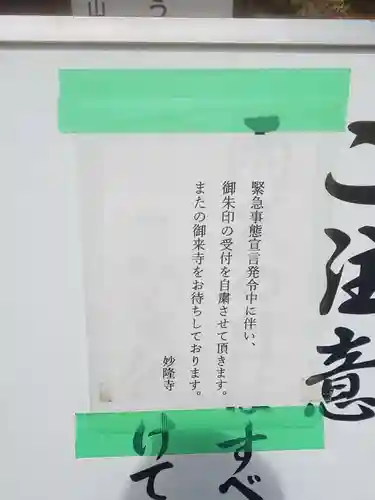 山
う
ご注意
すべ
けて
緊急事態宣言発令中に伴い、
御朱印の受付を自粛させて頂きます。
またの御来寺をお待ちしております。
妙隆寺